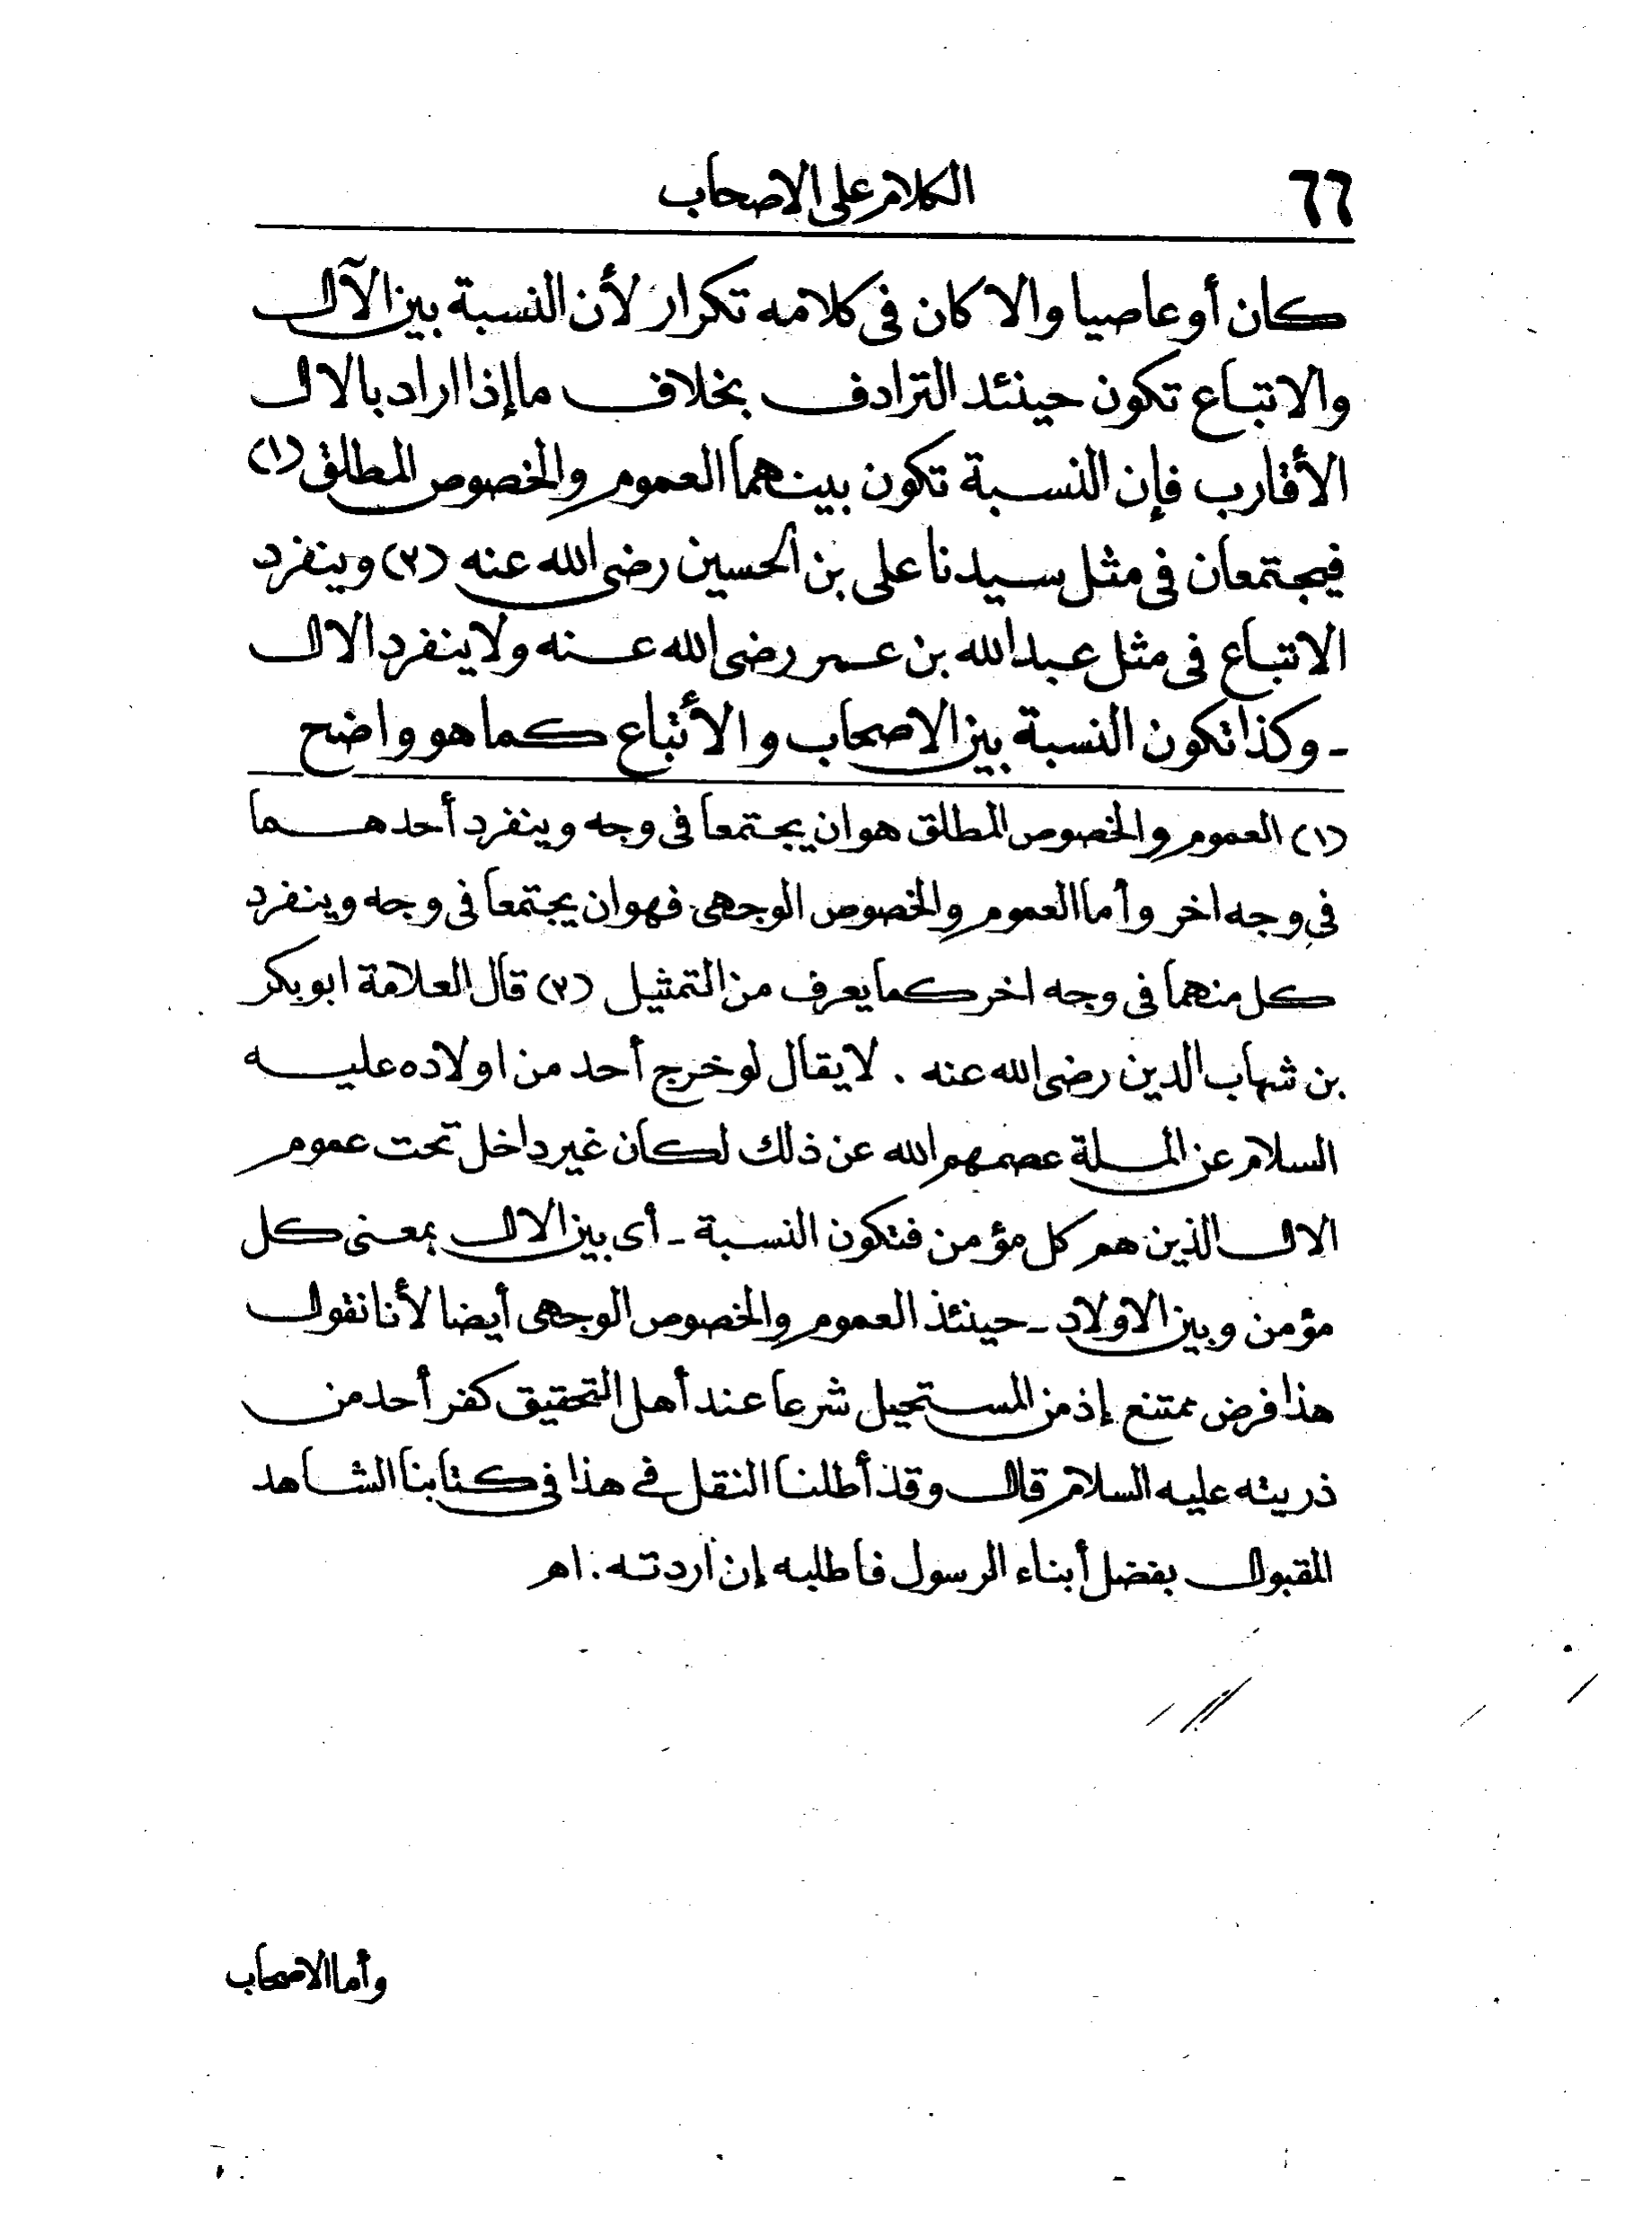 ٦٦
الكلام على الاصحاب
كان أو عاصيا والا كان فى كلامه تكرار لأن النسبة بين الآل
والاتباع تكون حينئد الترادف بخلاف ما إذا اراد بالال
الأقارب فإن النسبة تكون بينهما العموم والخصوص المطلق (١)
فيجتمعان فى مثل سيدنا على بن الحسين رضى الله عنه (٢) وينفرد
الاتباع فى مثل عبد الله بن عمر رضى الله عنه ولا ينفرد الال
- وكذا تكون النسبة بين الاصحاب والأتباع كما هو واضح
(١) العموم والخصوص المطلق هو ان يجتمعا فى وجه وينفرد أحدهما
فى وجه اخر وأما العموم والخصوص الوجهى فهو ان يجتمعا فى وجه وينفرد
كل منهما فى وجه اخر كما يعرف من التمثيل (٢) قال العلامة ابو بكر
بن شهاب الدين رضى الله عنه . لا يقال لو خرج أحد من اولاده عليه
السلام عن الملة عصمهم الله عن ذلك لكان غير داخل تحت عموم
الال الذين هم كل مؤمن فتكون النسبة - أى بين الال بمعنى كل
مؤمن وبين الاولاد - حينئذ العموم والخصوص الوجهى أيضا لأنا نقول
هذا فرض ممتنع إذ من المستحيل شرعا عند أهل التحقيق كفر أحد من
ذريته عليه السلام قال وقذ أطلنا النقل فى هذا فى كتابنا الشاهد
المقبول بفضل أبناء الرسول فاطلبه إن اردته . اهـ
وأما الاصحاب